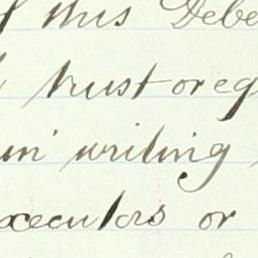 of this Debe
trust or eq
in writing
executors or